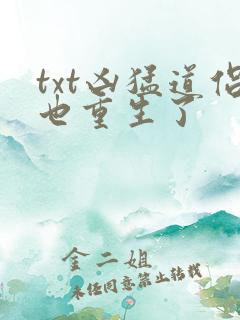 txt凶猛道侣
也重生了
金二姐
未经同意禁止转载